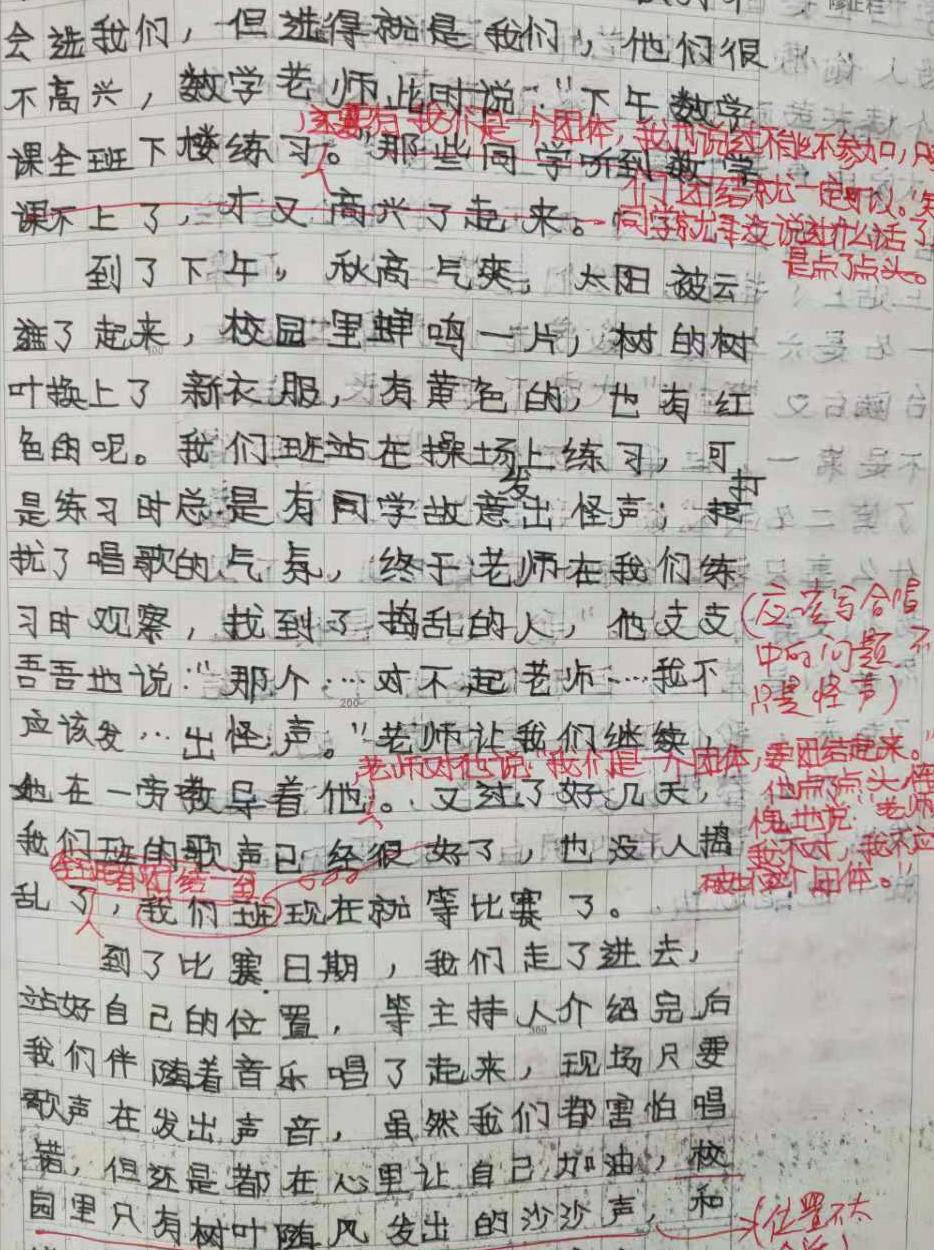 会选我们，但选得就是我们，他们很
不高兴，数学老师此时说："下午数学
还要有 我们是一个团体，我也说过不能不参加，只
课全班下楼练习。"那些同学听到数学
们团结就一定可以。
课不上了，才又高兴了起来。
同学就再没说过什么话了
是点了点头。
到了下午，秋高气爽，太阳被云
遮了起来，校园里蝉鸣一片，树的树
叶换上了新衣服，有黄色的，也有红
色的呢。我们班站在操场上练习，可
是练习时总是有同学故意发出怪声；打
扰了唱歌的气氛，终于老师在我们练
习时观察，找到了捣乱的人，他支支
(应该写合唱
中的问题 不
只是怪声)
吾吾地说："那个……对不起老师……我不
应该发…出怪声。"老师让我们继续，
老师对他说："我们是一个团体，要团结起来。"
他点了点头
愧地说："老师
我不对，我不应
个团体。"
她在一旁教导着他。又过了好几天，
我们班的歌声已经很好了，也没人捣
团结一致
乱了，我们班现在就等比赛了。
到了比赛日期，我们走了进去，
站好自己的位置，等主持人介绍完后
我们伴随着音乐唱了起来，现场只要
歌声在发出声音，虽然我们都害怕唱
错，但还是都在心里让自己加油，校
园里只有树叶随风发出的沙沙声，和
(位置不太